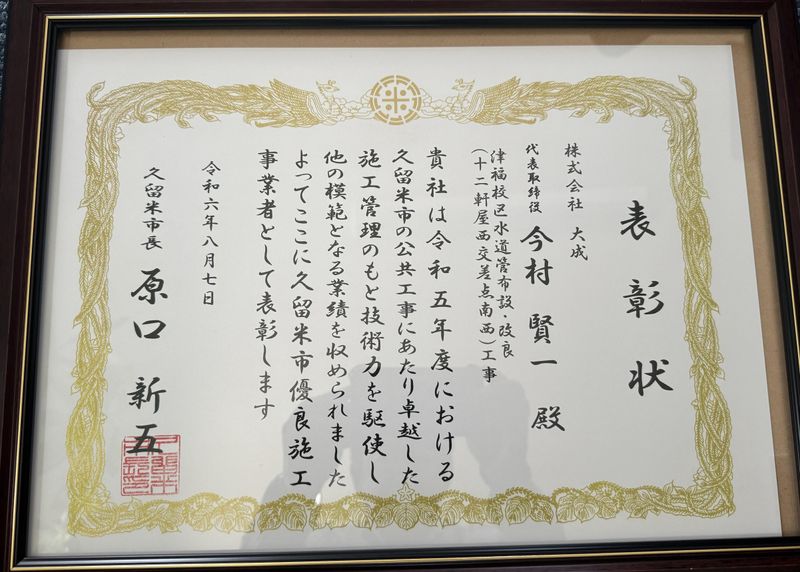 表彰状
株式会社 大成
代表取締役 今村 賢一 殿
津福校区水道管布設・改良
(十二軒屋西交差点南西)工事
貴社は令和五年度における
久留米市の公共工事にあたり卓越した
施工管理のもと技術力を駆使し
他の模範となる業績を収められました
よってここに久留米市優良施工
事業者として表彰します
令和六年八月七日
久留米市長 原口 新五